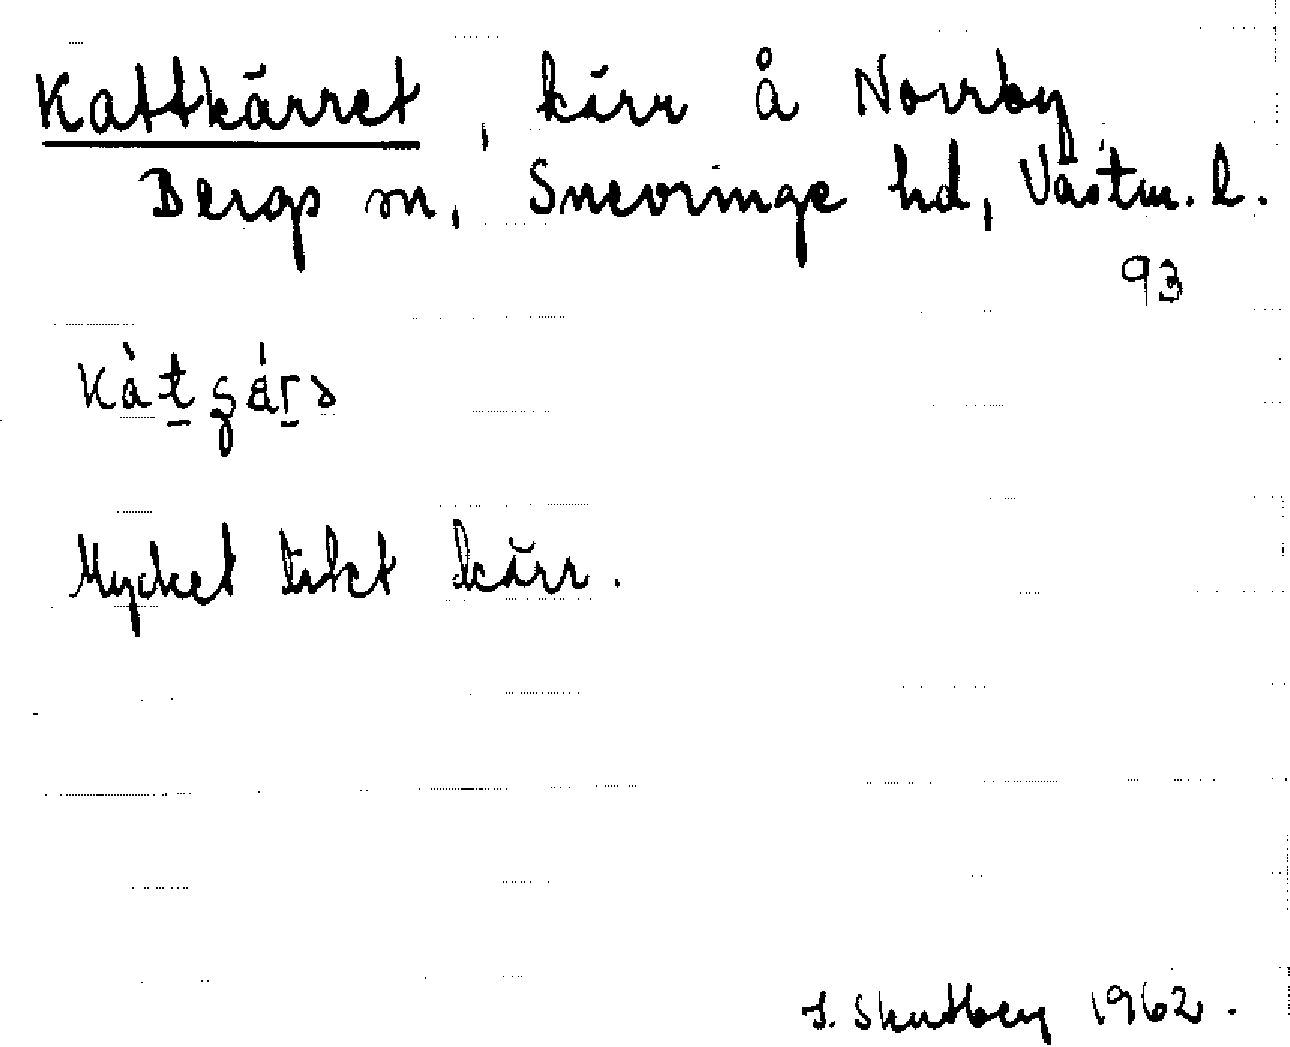 Kattkärret, kärr å Norrby
Bergs sn, Snevringe hd, Västm. l.
93
Mycket tikt kärr.
S. Skutberg 1962.